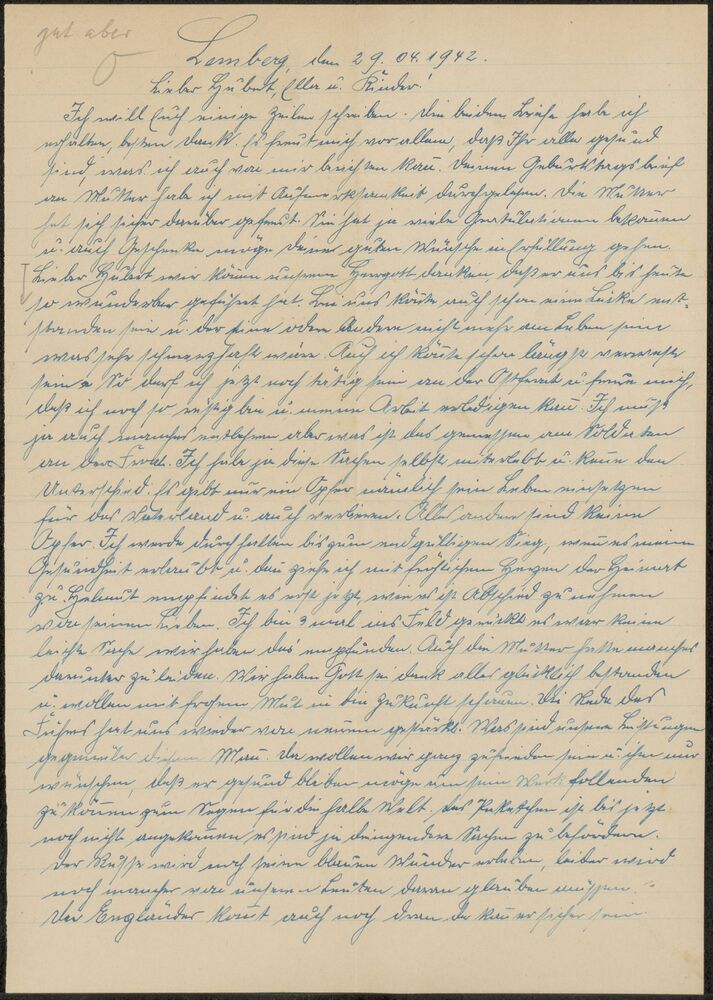 gut aber
Lemberg, den 29.04.1942.
Lieber Hubert, Ella u. Kinder!
Ich will Euch einige Zeilen schreiben. Die beiden Briefe habe ich
erhalten, besten Dank. Es freut mich vor allem, daß Ihr alle gesund
sind, was ich auch von mir berichten kann. Deinen Geburtstagsbrief
an Mutter habe ich mit Aufmerksamkeit durchgelesen. Die Mutter
hat sich sicher darüber gefreut. Sie hat ja viele Gratulationen bekommen
u. auch Geschenke möge Deine guten Wünsche in Erfüllung gehen.
Lieber Hubert wir können unserem Herrgott danken, daß er uns bis heute
so wunderbar geführt hat. Bei uns könnte auch schon eine Lücke ent-
standen sein u. der eine oder andere nicht mehr am Leben sein
was sehr schmerzhaft wäre. Auch ich könnte schon längst verwest
sein. So darf ich jetzt noch tätig sein an der Ostfront u. freue mich,
daß ich noch so rüstig bin u. meine Arbeit erledigen kann. Ich muß
ja auch manches entbehren aber was ist das gemessen am Soldaten
an der Front. Ich habe ja diese Sachen selbst miterlebt u. kenne den
Unterschied. Es gibt nur ein Opfer nämlich sein Leben einsetzen
für das Vaterland u. auch verlieren. Alles andere sind keine
Opfer. Ich werde durchhalten bis zum endgültigen Sieg, wenn es meine
Gesundheit erlaubt u. dann ziehe ich mit fröhlichem Herzen der Heimat
zu. Helmut empfindet es erst jetzt, wie es ist Abschied zu nehmen
von seinen Lieben. Ich bin 3 mal ins Feld gerückt es war keine
leichte Sache wir haben das empfunden. Auch die Mutter hatte manches
darunter zu leiden. Wir haben Gott sei dank alles glücklich bestanden
u. wollen mit frohem Mut in die Zukunft schauen. Die Rede des
Führers hat uns wieder von neuem gestärkt. Was sind unsere Leistungen
gegenüber diesem Mann. Da wollen wir ganz zufrieden sein u. ihm nur
wünschen, daß er gesund bleiben möge um sein Werk vollenden
zu können zum Segen für die halbe Welt. Das Paketchen ist bis jetzt
noch nicht angekommen es sind ja dringendere Sachen zu befördern.
Der Russe wird noch seine blauen Wunder erleben, leider wird
noch mancher von unseren Leuten daran glauben müssen.
Der Engländer kommt auch noch dran da kann er sicher sein.